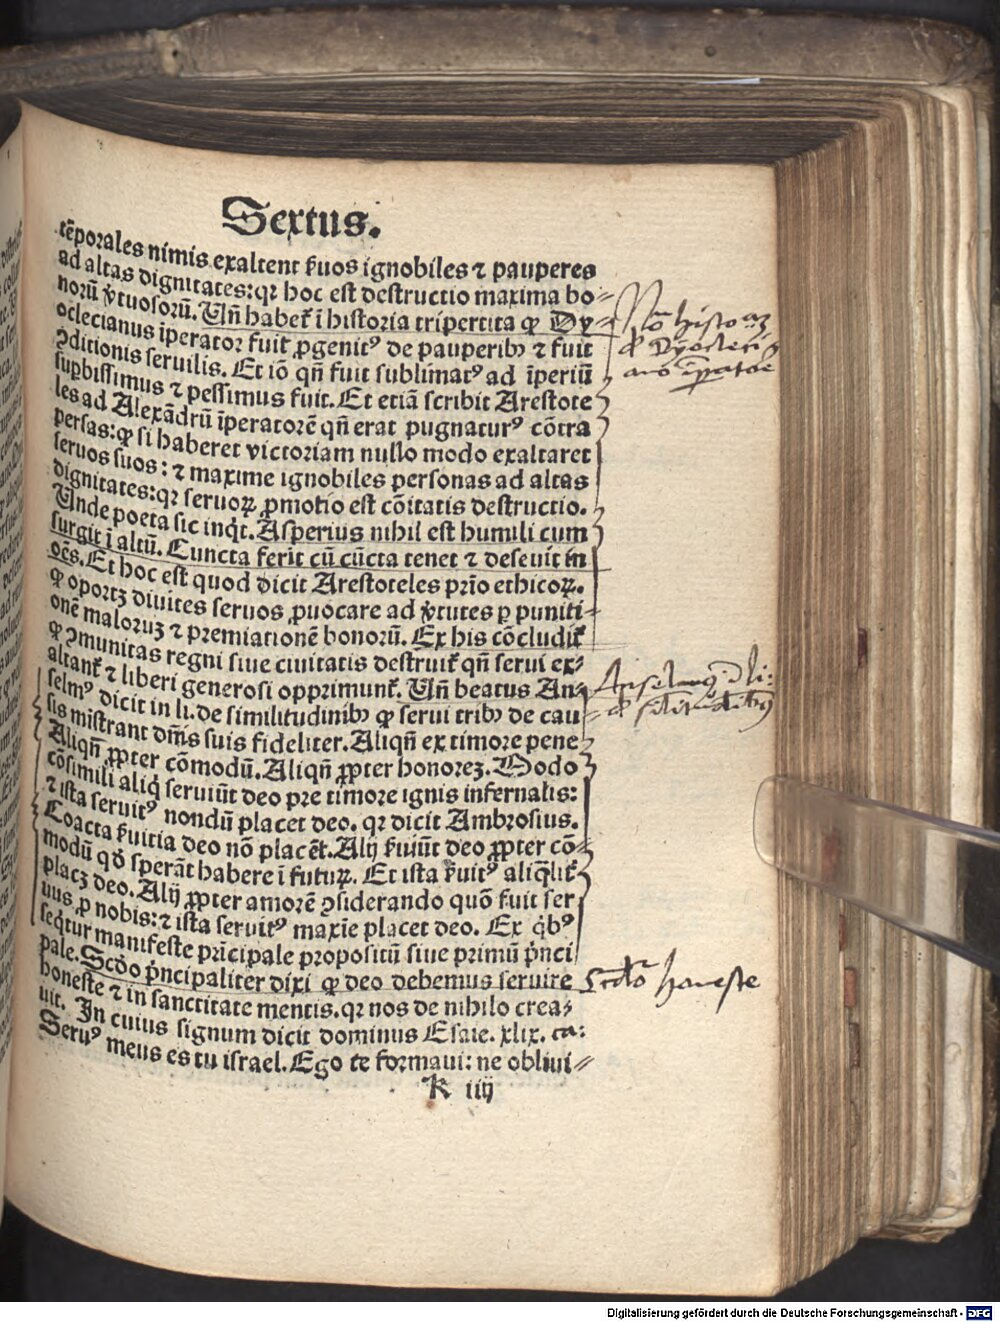 Sextus.
tēporales nimis exaltent ẜuos ignobiles ⁊ pauperes
ad altas dignitates: qꝛ hoc est destructio maxima bo⸗
norū v̓tuosorū. Uñ habet̃ ī historia tripertita ꝙ Dy⸗
oclecianus īperator fuit ꝓgenitꝰ de pauperibꝫ ⁊ fuit
ꝯditionis seruilis. Et iō qñ fuit sublimatꝰ ad īperiū
suꝑbissimus ⁊ pessimus fuit. Et etiā scribit Arestote
les ad Alexādrū īperatorē qñ erat pugnaturꝰ cōtra
persas: ꝙ si haberet victoriam nullo modo exaltaret
seruos suos: ⁊ maxime ignobiles personas ad altas
dignitates: qꝛ seruoꝝ ꝓmotio est cōitatis destructio.
Unde poeta sic inq̇t. Asperius nihil est humili cum
surgit ī altū. Cuncta ferit cū cūcta tenet ⁊ deseuit in
oēs. Et hoc est quod dicit Arestoteles prīo ethicoꝝ.
ꝙ oportꝫ diuites seruos ꝓuocare ad v̓tutes ꝑ puniti⸗
onē maloruꝫ ⁊ premiationē bonorū. Ex his cōcludit̃
ꝙ ꝯmunitas regni siue ciuitatis destruit̃ qñ serui ex⸗
altant̃ ⁊ liberi generosi opprimunt̃. Uñ beatus An⸗
selmꝰ dicit in li. de similitudinibꝫ ꝙ serui tribꝫ de cau⸗
sis mīstrant dm̄s suis fideliter. Aliqñ ex timore pene
Aliqñ ꝓpter cōmodū. Aliqñ ꝓpter honoreꝫ. Modo
cōsimili aliq̇ seruiūt deo pre timore ignis infernalis:
⁊ ista seruitꝰ nondū placet deo. qꝛ dicit Ambrosius.
Coacta ẜuitia deo nō placēt. Alij ẜuiūt deo ꝓpter cō⸗
modū qd̓ sperāt habere ī futuꝝ. Et ista ẜuitꝰ aliq̄lit̃
placꝫ deo. Alij ꝓpter amorē ꝯsiderando quō fuit ser
uus ꝓ nobis: ⁊ ista seruitꝰ maxīe placet deo. Ex q̇bꝰ
seq̇tur manifeste prīcipale propositū siue primū pñci
pale. Scd̓o pñcipaliter dixi ꝙ deo debemus seruire
honeste ⁊ in sanctitate mentis. qꝛ nos de nihilo crea⸗
uit. In cuius signum dicit dominus Esaie. xlix. ca:
Seruꝰ meus es tu israel. Ego te formaui: ne obliui⸗
K iiij
Anselmꝰ
Scd̓o honeste
Digitalisierung gefördert durch die Deutsche Forschungsgemeinschaft - DFG